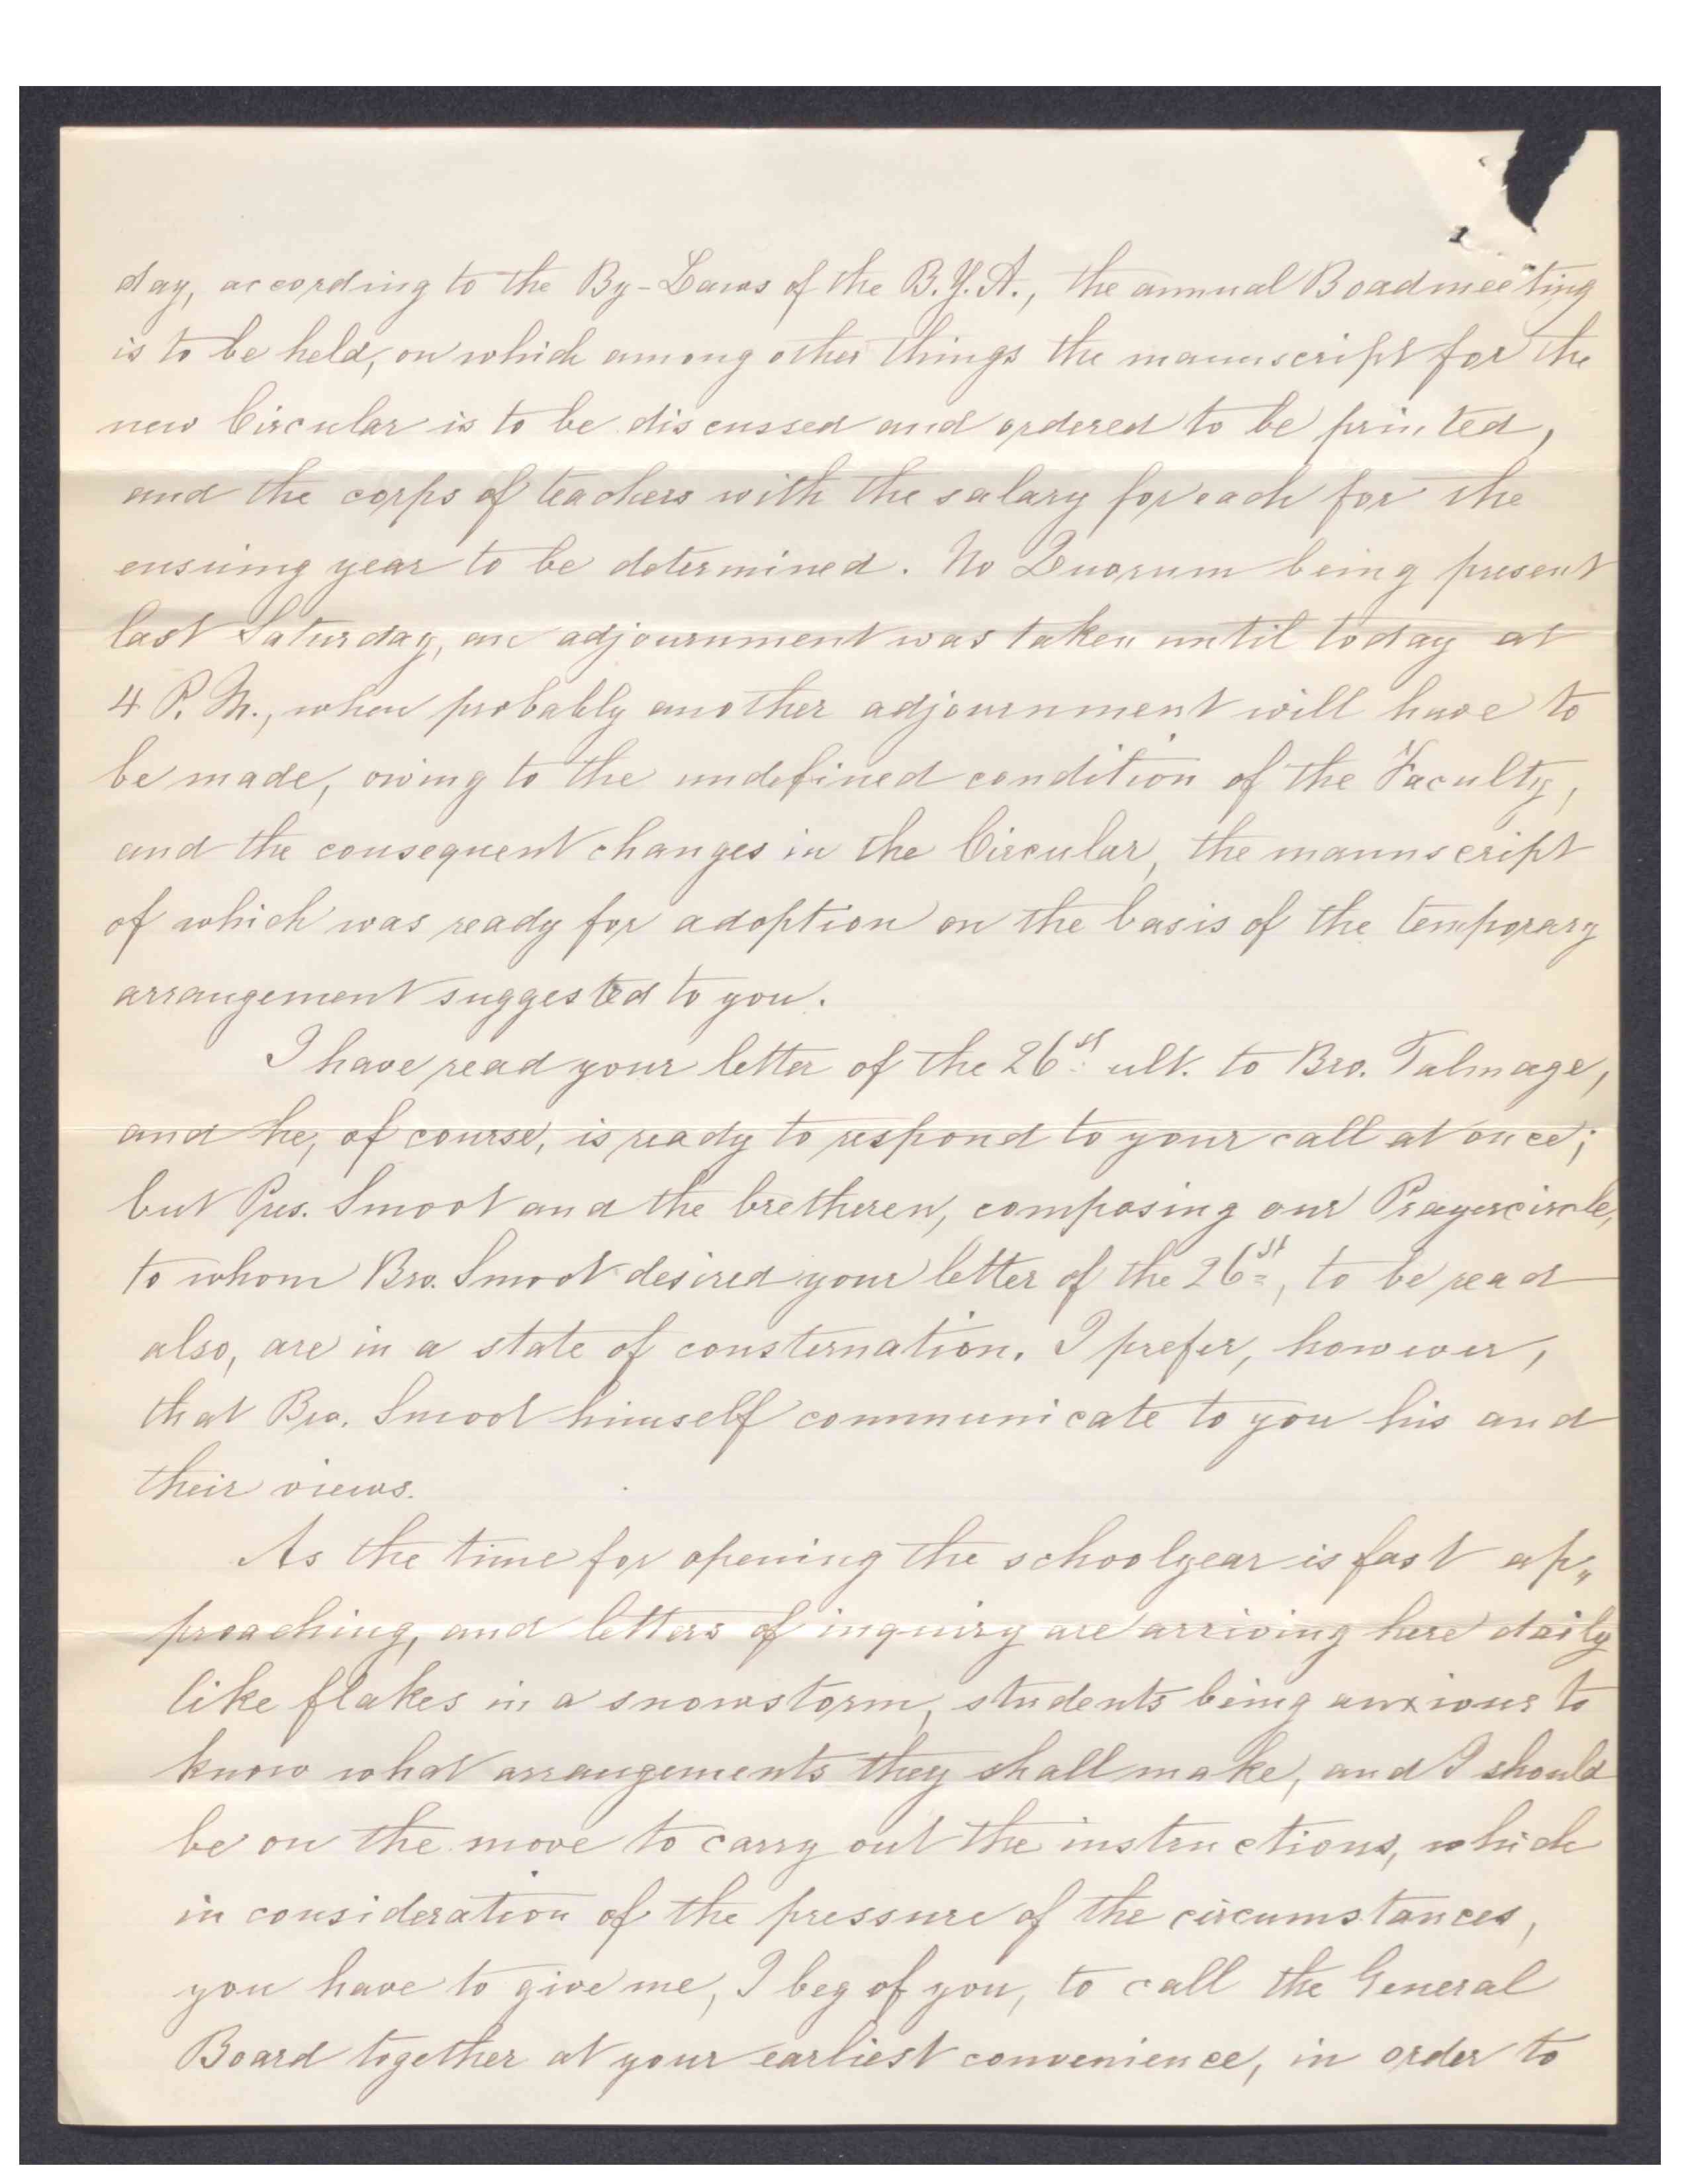 day, according to the By-Laws of the B.Y.A., the annual Boadmeeting
is to be held, on which among other things the manuscript for the
new Circular is to be discussed and ordered to be printed,
and the corps of teachers with the salary for each for the
ensuing year to be determined. No Quorum being present
last Saturday, an adjournment was taken until today at
4 P. M., when probably another adjournment will have to
be made, owing to the undefined condition of the Faculty,
and the consequent changes in the Circular, the manuscript
of which was ready for adoption on the basis of the temporary
arrangement suggested to you.
I have read your letter of the 26st ult. to Bro. Talmage,
and he, of course, is ready to respond to your call at once;
but Pres. Smoot and the bretheren, composing our Prayercircle,
to whom Bro. Smoot desired your letter of the 26st, to be read
also, are in a state of consternation. I prefer, however,
that Bro. Smoot himself communicate to you his and
their views.
As the time for opening the schoolyear is fast ap„
proaching, and letters of inquiry are arriving here daily
like flakes in a snowstorm, students being anxious to
know what arrangements they shall make, and I should
be on the move to carry out the instructions, which
in consideration of the pressure of the circumstances,
you have to give me, I beg of you, to call the General
Board together at your earliest convenience, in order to